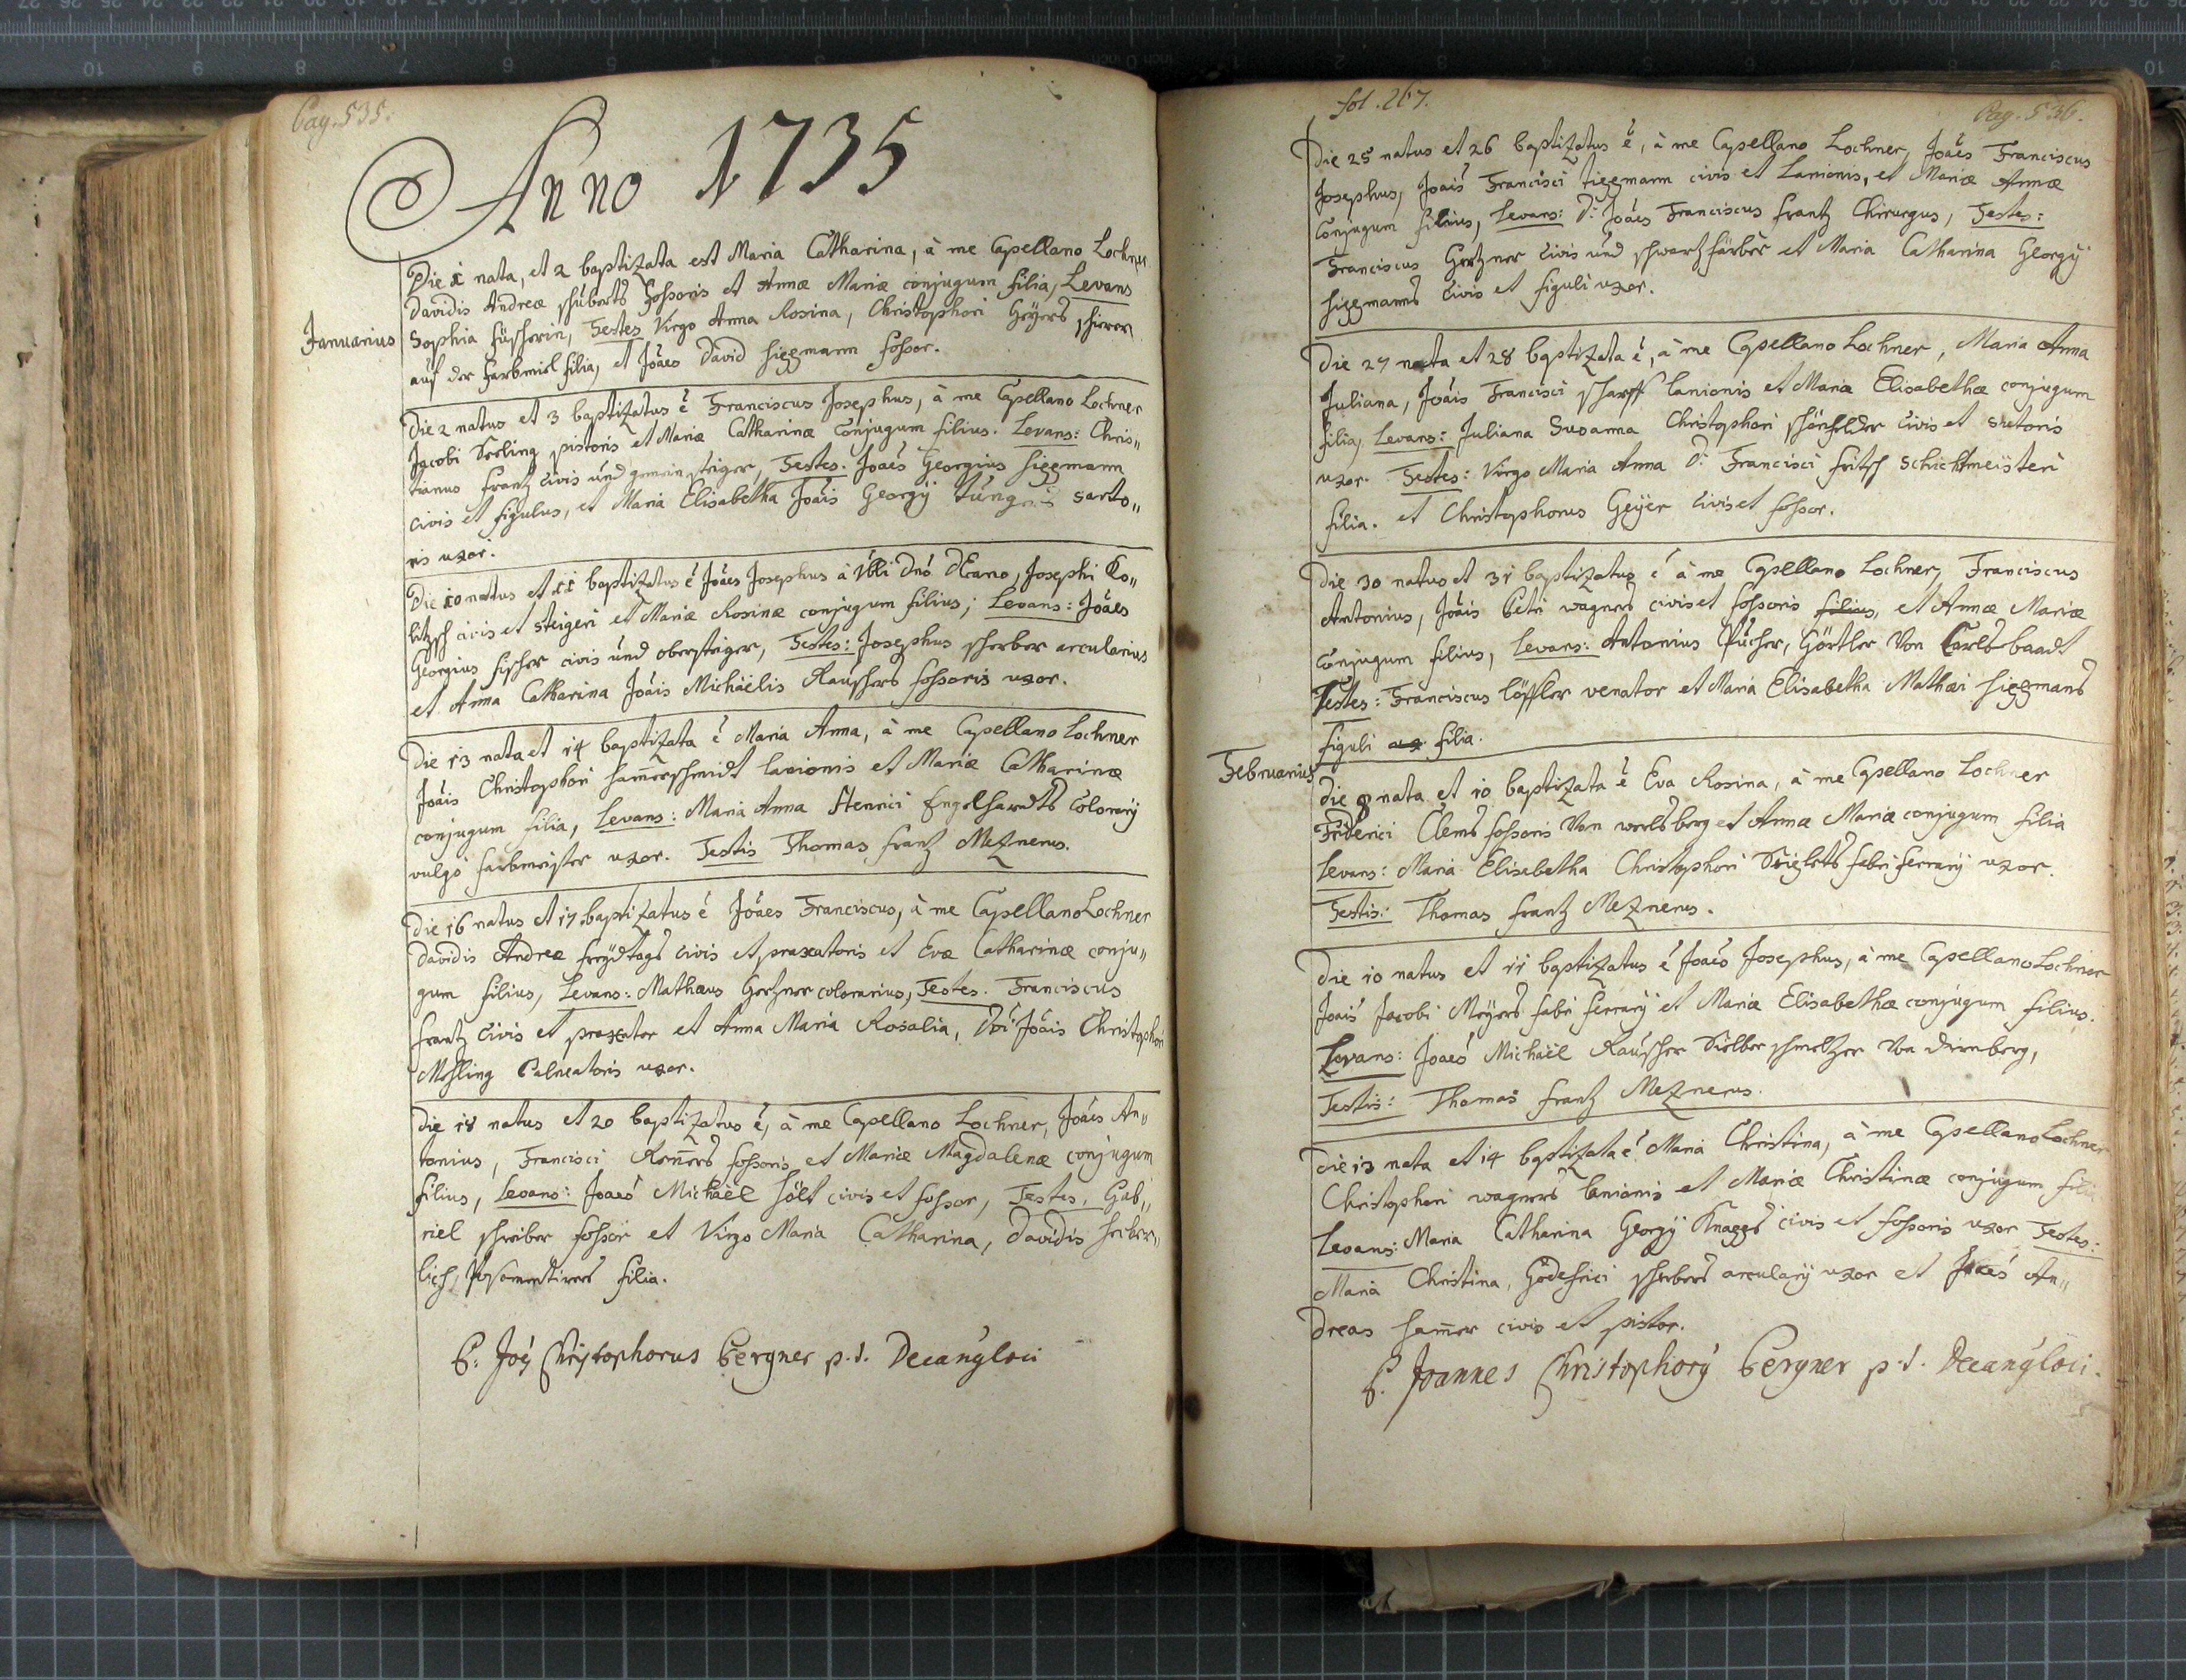 Pag. 535.
Anno 1735
Januarius
Die 1 nata, et 2 baptizata est Maria Catharina, à me Capellano Lochner
Davidis Andreæ schuberts Fossoris et Annæ Mariæ conjugum filia, Levans
Sophia füscherin, Testes Virgo Anna Rosina, Christophori Geÿers schirer
auf der Farbmiel filia, et Joães David siggmann fossor.
Die 2 natus et 3 baptizatus ẽ Franciscus Josephus, à me Capellano Lochner
Jacobi Seeling pistoris et Mariæ Catharinæ Conjugum filius. Levans: Chris„
tianus frantz Civis und gemein steiger, Testes. Joaẽs Georgius siggmann
civis et figulus, et Maria Elisabetha Joãis Georgÿ sarto„
ris uxor.
Die 10 natus et 11 baptizatus ẽ Joães Josephus à Dnõ dEcano, Josephi Ko„
litzsch civis et steigeri et Mariæ Rosinæ conjugum filius; Levans: Joães
Georgius fischer civis und obersteiger, Testes: Josephus scherber arcularius
et Anna Catharina Joãis Michäelis Rauschers fossoris uxor.
Die 13 nata et 14 baptizata ẽ Maria Anna, à me Capellano Lochner
Joãis Christophori ham̃erschmidt lanionis et Mariæ Catharinæ
conjugum filia, Levans: Maria Anna Henrici Engelhardts Colorarÿ
vulgò farbmeister uxor. Testis Thomas frantz Meznerus.
Die 16 natus et 17 baptizatus ẽ Joães Franciscus, à me Capellano Lochner
Davidis Andreæ freÿdtags Civis et praxatoris et Evæ Catharinæ conju„
gum filius, Levans: Mathæus Gertzner colorarius, Testes. Franciscus
frantz Civis et praxator et Anna Maria Rosalia, Joãis Christophori
Meßling Balneatoris uxor.
Die 18 natus et 20 baptizatus ẽ, à me Capellano Lochner, Joães An„
tonius, Francisci Rem̃ers fossoris et Mariæ Magdalenæ conjugum
filius, Levans: Joaẽs Michäel hölt civis et fossor, Testes. Gab„
riel schreiber fossor et Virgo Maria Catharina, Davidis
lich, Posamentirers filia.
P: Joẽs Christophorus Bergner p.t. Decanꝰ loci
fol. 267.
Pag. 536.
Die 25 natus et 26 baptizatus ẽ, à me Capellano Lochner, Joães Franciscus
Josephus, Joãis Francisci siggmann civis et Lanionis, et Mariæ Annæ
Conjugum filius, Levans: D: Joães Franciscus frantz Chirurgus, Testes:
Franciscus Gertzner Civis und schwartzfärber et Maria Catharina Georgÿ
siggmanns Civis et figuli uxor.
Die 27 nata et 28 baptizata ẽ, à me Capellano Lochner, Maria Anna
Juliana, Joãis Francisci scharff lanionis et Mariæ Elisabethæ conjugum
filia, Levans: Juliana Susanna Christophori schönfelder Civis et sutoris
uxor. Testes: Virgo Maria Anna D: Francisci fritsch schichtmeisteri
filia. et Christophorus Geÿer Civis et fossor.
Die 30 natus et 31 baptizatus ẽ à me Capellano Lochner, Franciscus
Antonius, Joãis Petri wagners civis et fossoris filius, et Annæ Mariæ
Conjugum filius, Levans: Antonius Pücher, Görtler Von Carlsbaadt
Testes: Franciscus löffler venator et Maria Elisabetha Mathæi siggmans
figuli ux filia.
Februarius
Die 9 nata et 10 baptizata ẽ Eva Rosina, à me Capellano Lochner
Friderici Clems fossoris Von werlsberg et Annæ Mariæ conjugum filia
Levans: Maria Elisabetha Christophori fabri ferrarÿ uxor.
Testis: Thomas frantz Meznerus.
Die 10 natus et 11 baptizatus ẽ Joaẽs Josephus, à me Capellano Lochner
Joãis Jacobi Meÿers fabri ferrarÿ et Mariæ Elisabethæ conjugum filius.
Levans: Joaẽs Michäel Rauscher Sielberschmeltzer Von dirnberg,
Testis: Thomas frantz Meznerus.
Die 13 nata et 14 baptizata ẽ Maria Christina, à me Capellano Lochner
Christophori wagners lanionis et Mariæ Christinæ conjugum filia
Levans: Maria Catharina Georgÿ Knagges civis et fossoris uxor Testes:
Maria Christina, Godefrici scherbers arcularÿ uxor et Joaẽs An„
dreas ham̃er civis et pistor.
P. Joannes Christophorꝰ Bergner p.t. Decanꝰ loci.